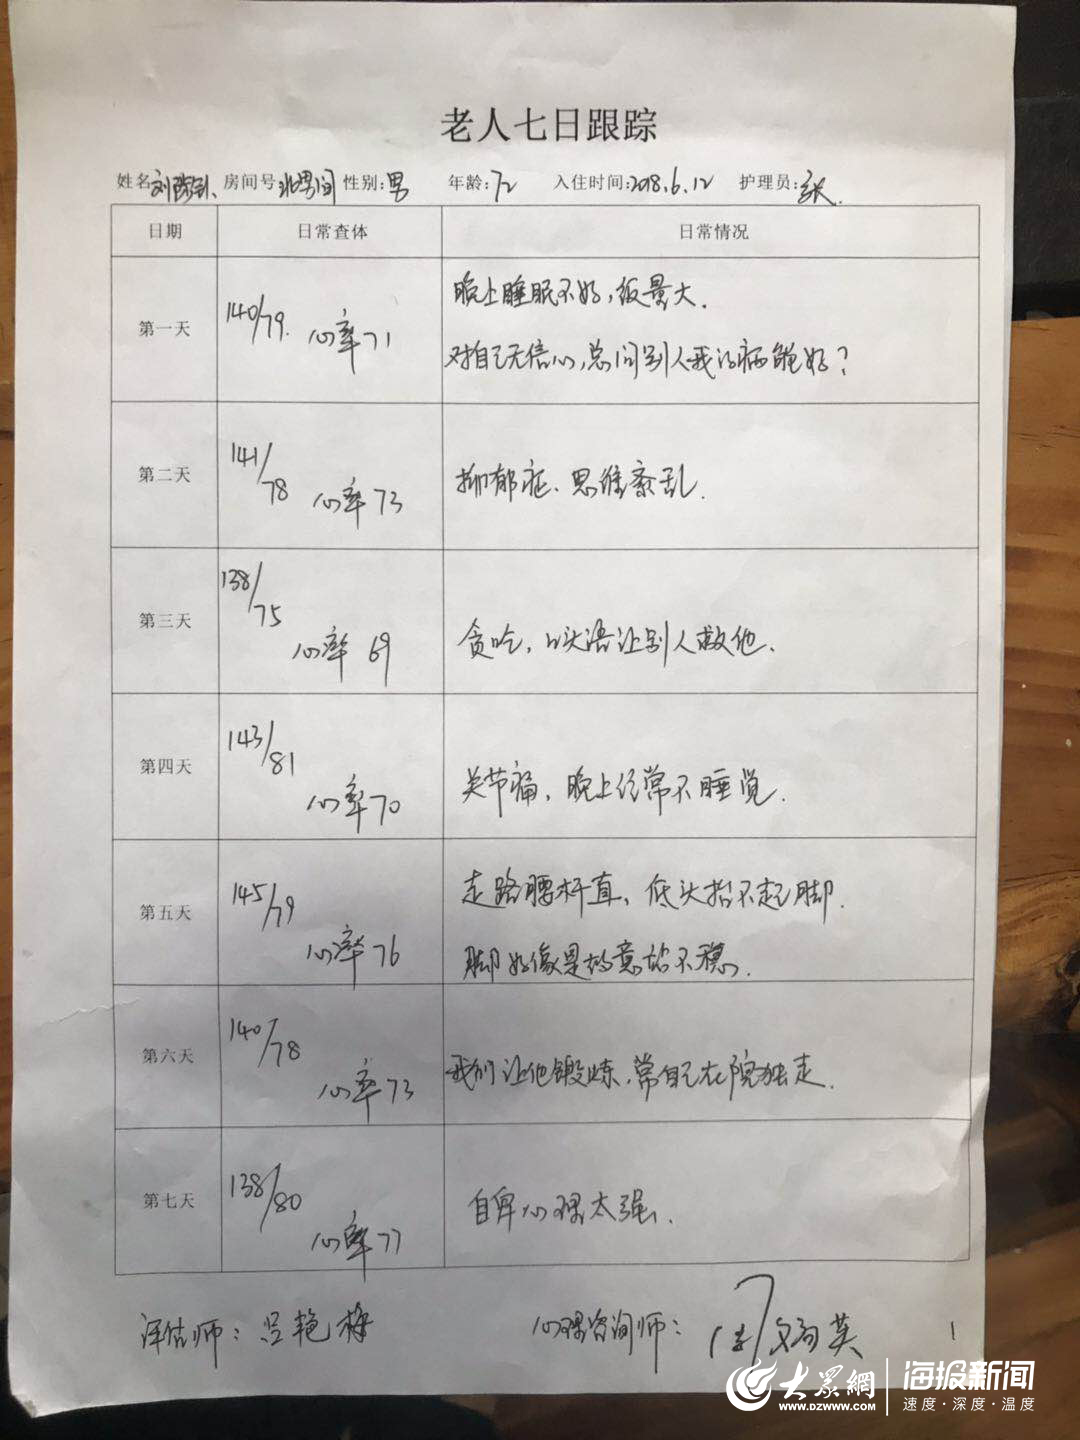 老人七日跟踪
姓名 刘 房间号 北男间 性别:男 年龄:72 入住时间:2018.6.12 护理员:张
日期 日常查体 日常情况
第一天 140/79. 心率71
晚上睡眠不好,饭量大.
对自己无信心,总问别人我的病能好?
第二天 141/78 心率73 抑郁症、思维紊乱.
第三天 138/75 心率69 贪吃, 让别人救他.
第四天 143/81 心率70 关节痛,晚上经常不睡觉.
第五天 145/79 心率76
走路腰杆直、低头抬不起脚.
脚好像是故意站不稳.
第六天 140/78 心率73 我们让他锻炼.常自己在院独走.
第七天 138/80 心率77 自卑心理太强.
评估师:吕艳梅 心理咨询师: 英 1
大众網 海报新闻
www.dzwww.com 速度·深度·温度